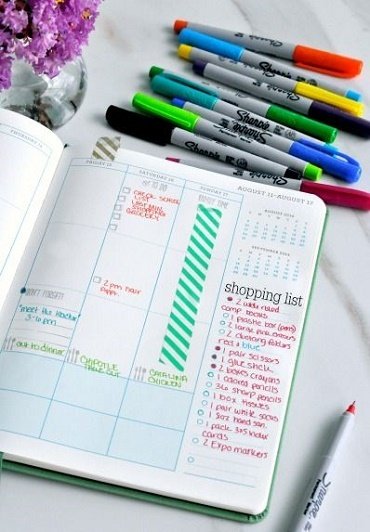 Sharpie
Sharpie
Sharpie
Sharpie
THURSDAY 15
FRIDAY 16
SATURDAY 16
SUNDAY 17
AUGUST 11-AUGUST 17
MY TO DO
CHECK SCHOOL
LIST
LAST MIN.
SHOPPING
GROCERY
TIME
2 pm hair
appt.
DON'T FORGET!
meet the teacher
3-6 pm
out to dinner
CHIPOTLE
TAKE OUT
CATALINA
CHICKEN
shopping list
2 wide ruled
comp books
1 plastic box (pens)
2 large pink erasers
2 clothing folders
red & blue
1 pair scissors
1 glue stick
2 boxes crayons
1 colored pencils
36 sharp pencils
1 box tissues
1 pair white socks
1 8oz hand san.
1 pack 3x5 index
cards
2 Expo markers
Sharpie